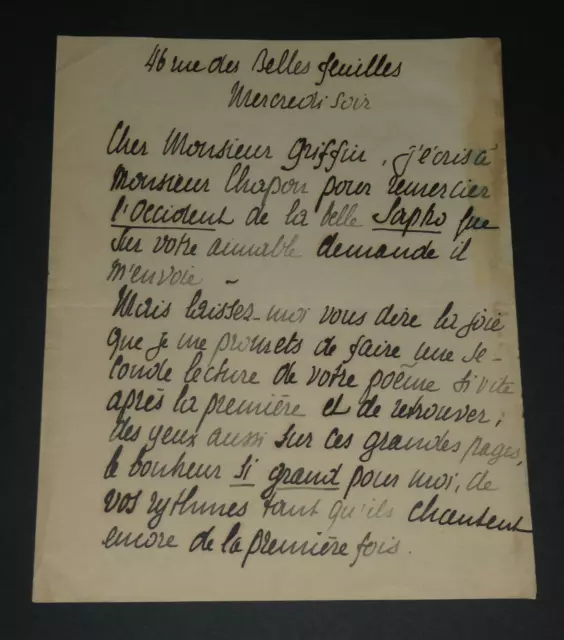 46 rue des Belles feuilles
Mercredi soir
Cher Monsieur Griffin, j'écris à
Monsieur Chapon pour remercier
l'Occident de la belle Sapho que
sur votre aimable demande il
m'envoie -
Mais laissez-moi vous dire la joie
que je me promets de faire une se-
conde lecture de votre poème si vite
après la première et de retrouver,
des yeux aussi sur ces grandes pages,
le bonheur si grand pour moi, de
vos rythmes tant qu'ils chantent
encore de la première fois.